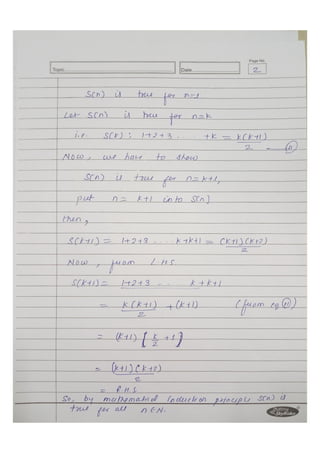 Page No.
Topic
Date
2
S(n) is true for n=1
Let S(n) is true for n=k
i.e S(k) : 1+2+3 . +k = k(k+1)/2 - (ii)
Now, we have to show
S(n) is true for n=k+1,
put n= k+1 into S(n)
then,
S(k+1) = 1+2+3 ... k+k+1 = (k+1)(k+2)/2
Now, from L H S
S(k+1) = 1+2+3 ... k+k+1
= k(k+1)/2 + (k+1) (from eq (ii))
= (k+1) [k/2 +1]
= (k+1)(k+2)/2
= R H S
So, by mathematical Induction principle S(n) is
true for all n∈N.